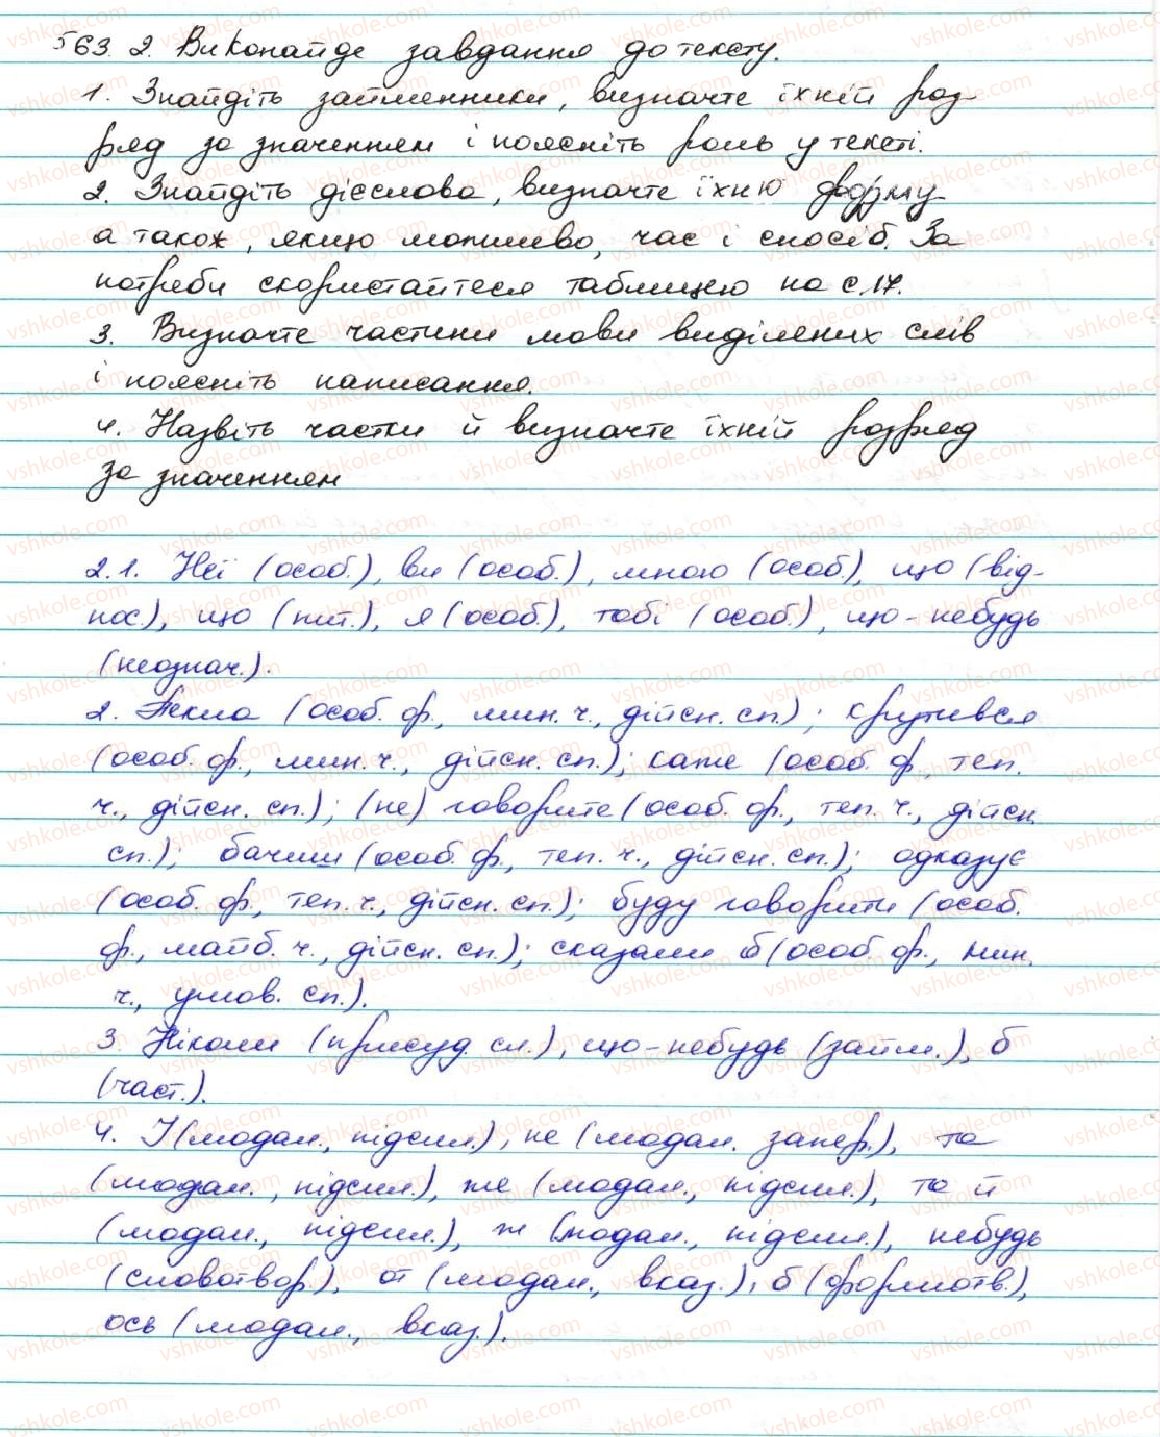 563. 2. Виконайде завдання до тексту.
1. Знайдіть займенники, визначте їхній роз-
ряд за значенням і поясніть роль у тексті.
2. Знайдіть дієслова, визначте їхню форму
а також, якщо можливо, час і спосіб. За
потреби скористайтеся таблицею на с.17.
3. Визначте частини мови виділених слів
і поясніть написання.
4. Назвіть частки й визначте їхній розряд
за значенням
2.1. Неї (особ.), ви (особ.), мною (особ.), що (від-
нос.), що (пит.), я (особ.), тобі (особ.), що-небудь
(неознач.).
2. Пекла (особ. ф., мин. ч., дійсн. сп.); крутився
(особ. ф., мин. ч., дійсн. сп.); каже (особ. ф., теп.
ч., дійсн. сп.); (не) говорите (особ. ф., теп. ч., дійсн.
сп.); бачиш (особ. ф., теп. ч., дійсн. сп.); одказує
(особ. ф., теп. ч., дійсн. сп.); буду говорити (особ.
ф., майб. ч., дійсн. сп.); сказали б (особ. ф., мин.
ч., умов. сп.).
3. Ніколи (присуд. сл.), що-небудь (займ.), б
(част.).
4. І (модал., підсил.), не (модал. запер.), та
(модал., підсил.), же (модал., підсил.), та й
(модал., підсил.), ж (модал., підсил.), небудь
(словотвор.), от (модал., вказ.), б (формотв.),
ось (модал., вказ.).